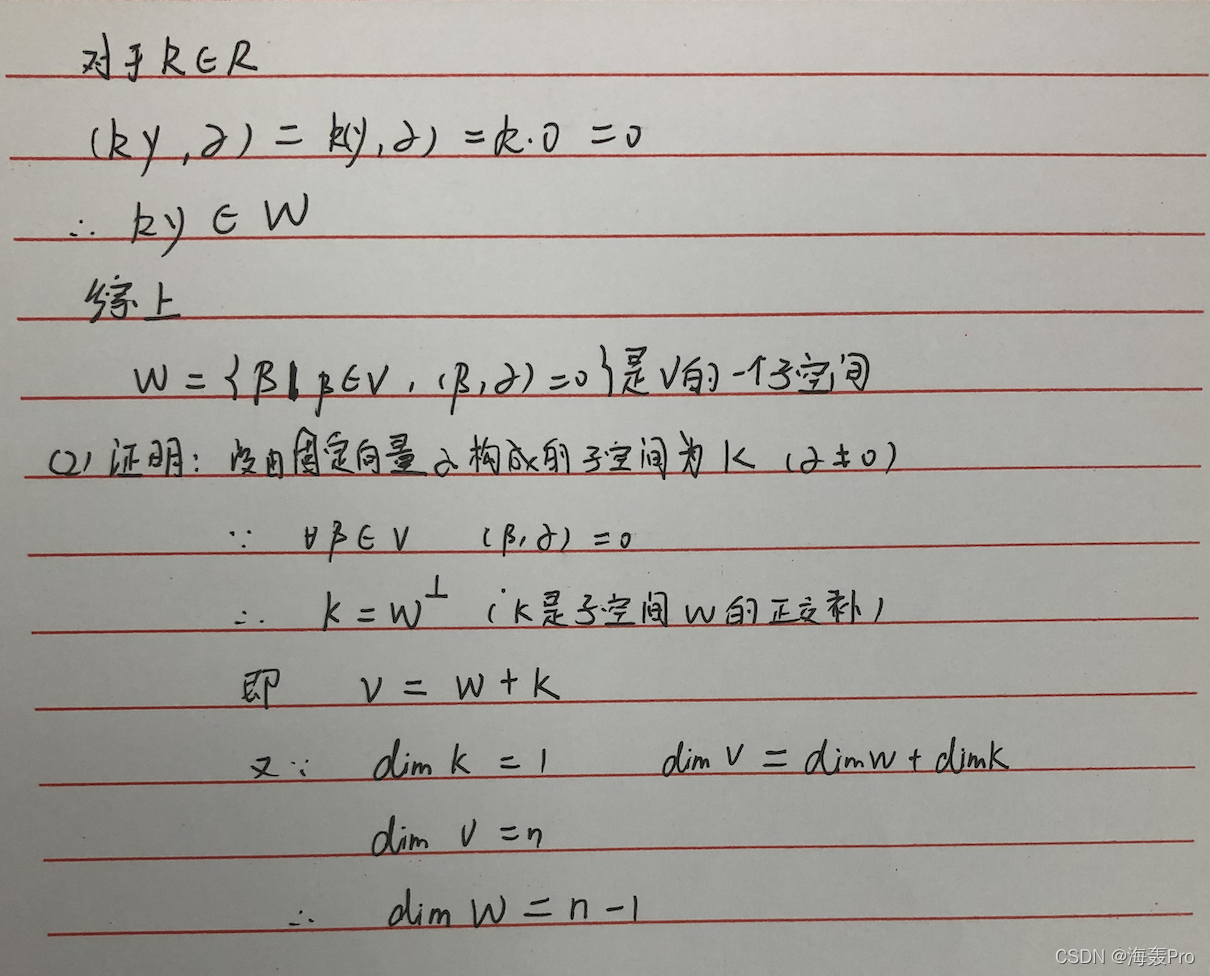 对于k∈R
(ky,α) = k(y,α) = k·0 = 0
∴ ky ∈ W
综上
W = {β|β∈V,(β,α)=0}是V的一个子空间
(2) 证明: 设由固定向量α构成的子空间为K (α≠0)
∵ ∀β∈V (β,α)=0
∴ K = W⊥ (K是子空间W的正交补)
即 V = W + K
又∵ dim K = 1 dim V = dim W + dim K
dim V = n
∴ dim W = n - 1
CSDN @海轰Pro